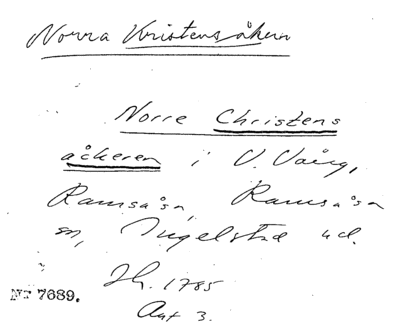 Norra Kristensåkern
Norre Christens
åckeren i V. Vång,
Ramsåsa, Ramsåsa
sn, Ingelstad hd.
Sh. 1785
Akt 3.
Nr 7689.